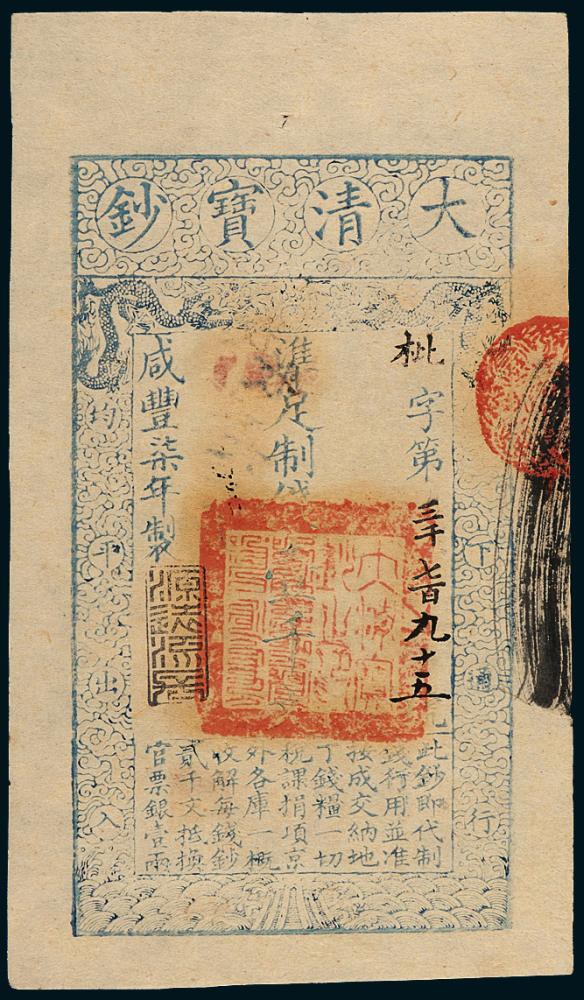 大清寶鈔
下通行
枇字第三千七百九十五
準足制錢
咸豐柒年製
源遠流長
均平出入
大清寶鈔之印
此鈔即代制
錢行用並准
按成交納地
丁錢糧一切
稅課捐項京
外各庫一概
收解每錢鈔
貳千文抵換
官票銀壹兩